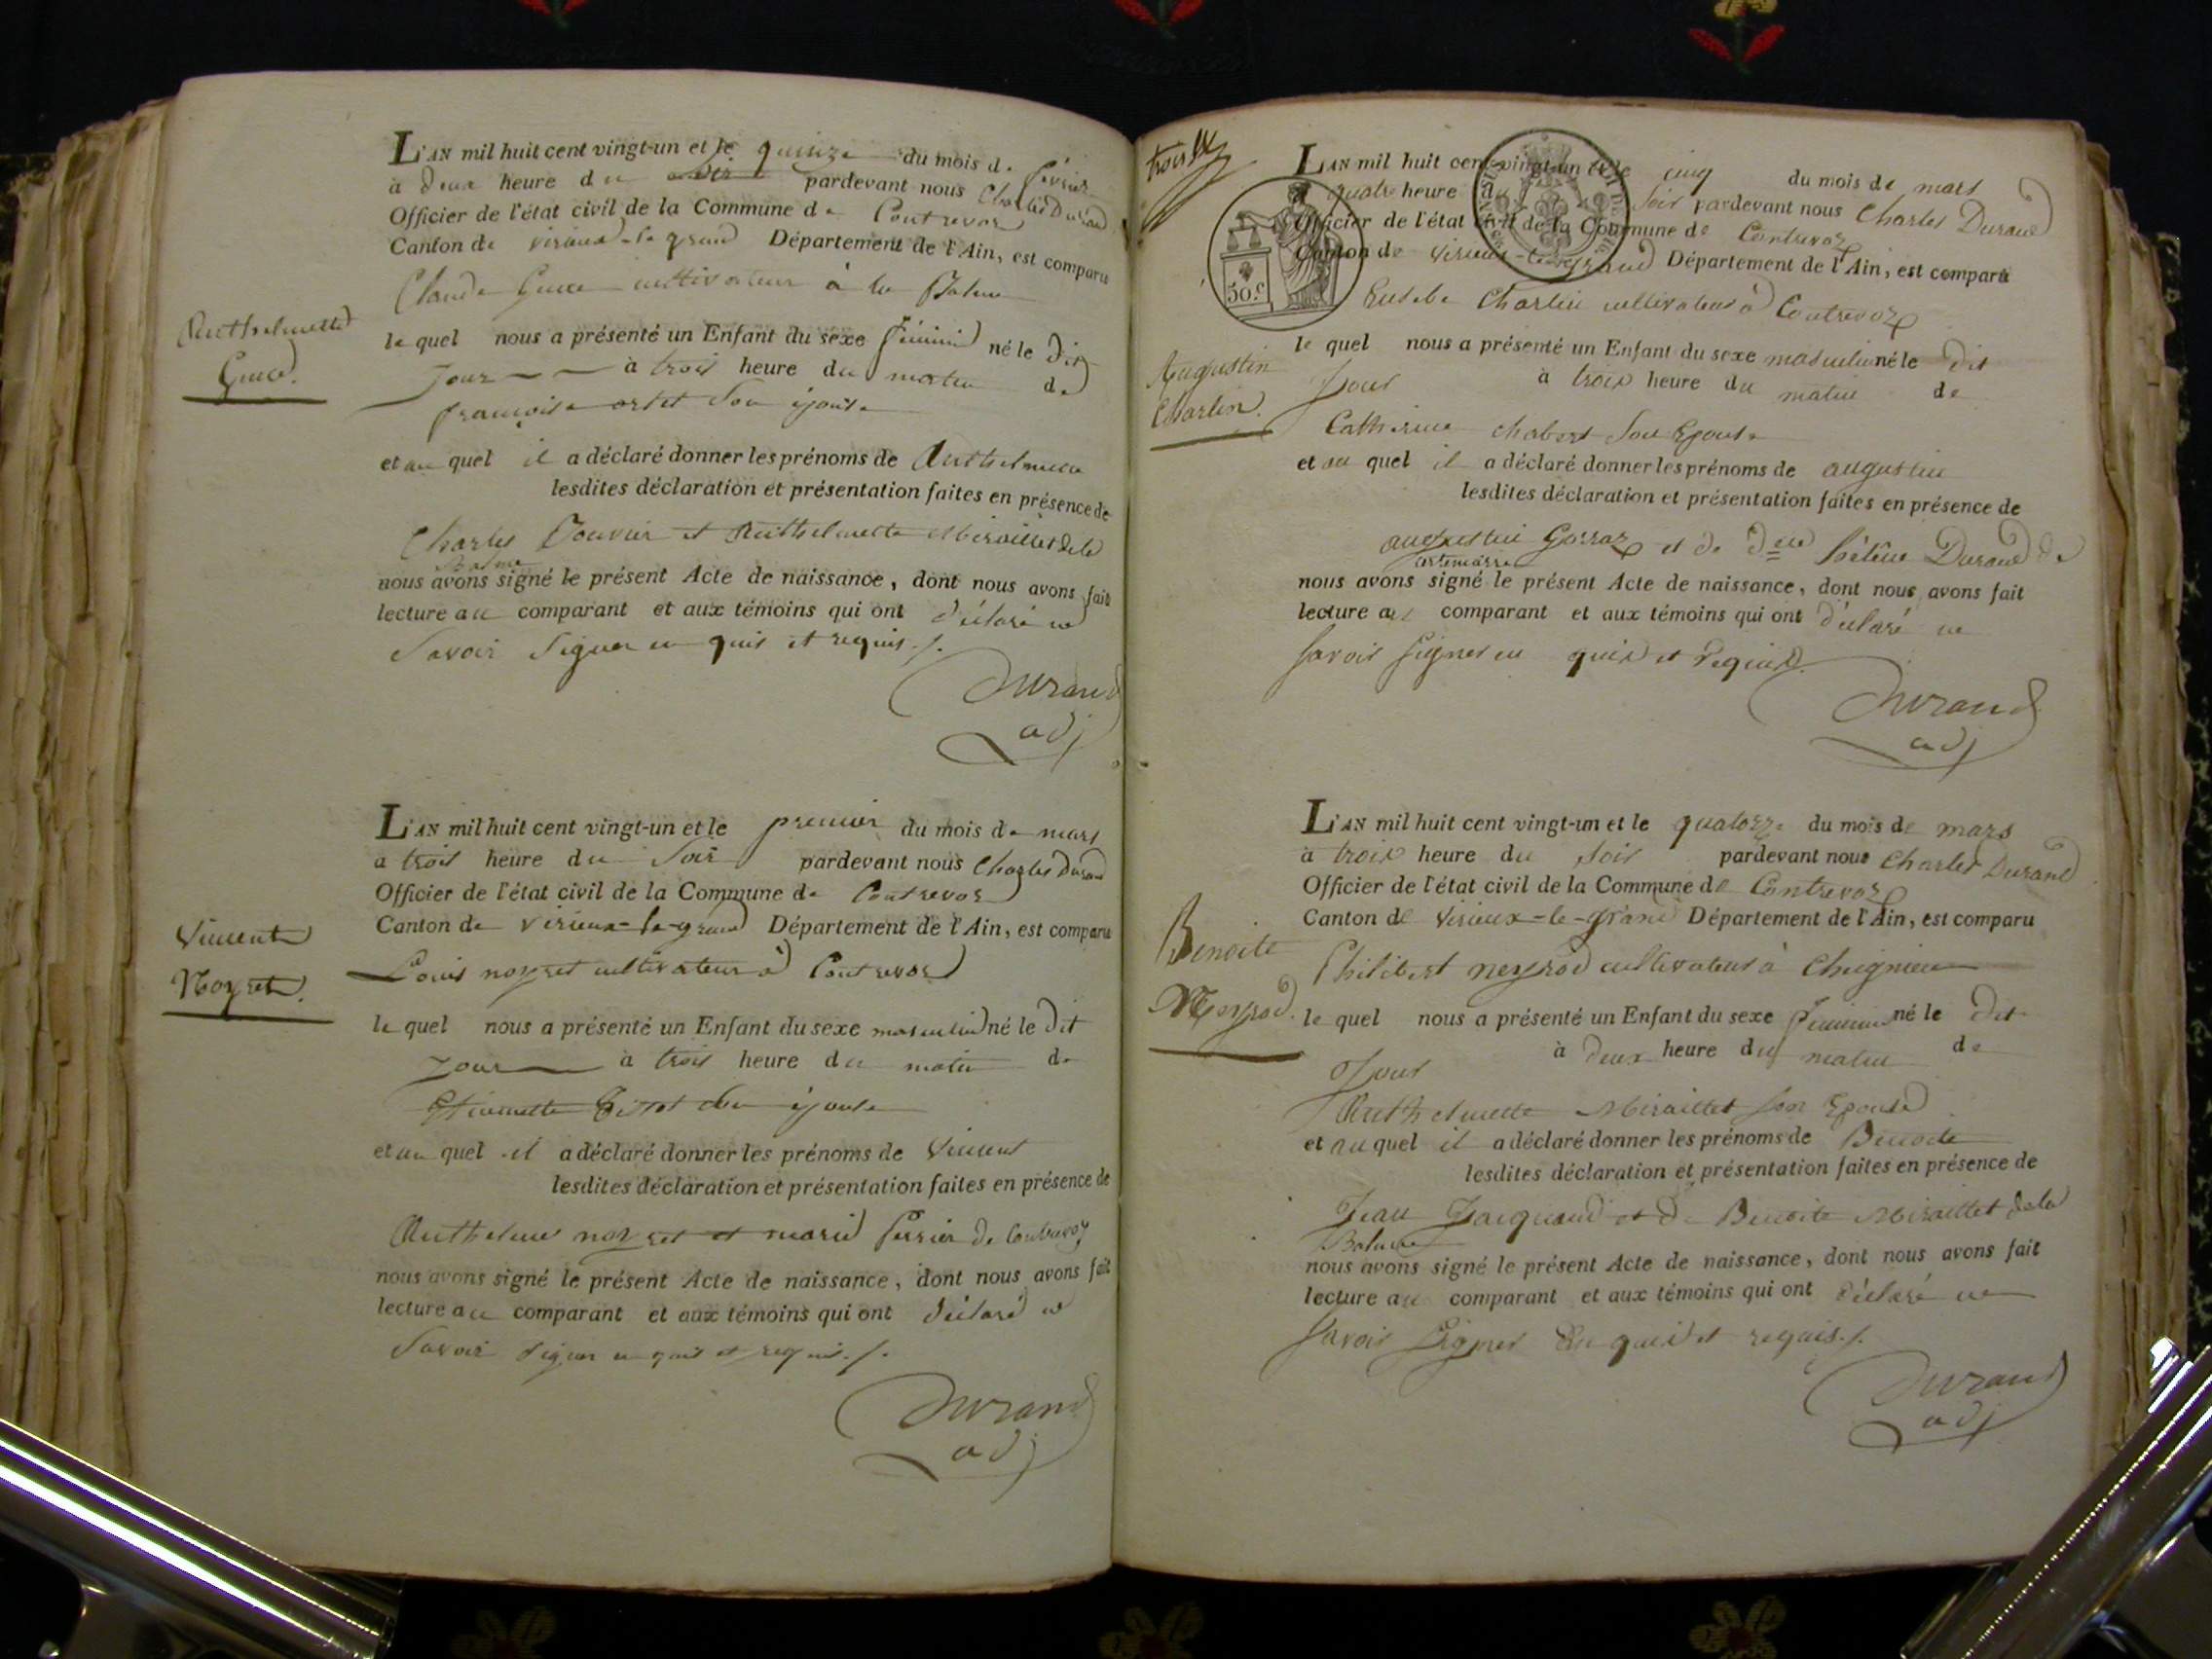 L'AN mil huit cent vingt-un et le quinze du mois de février
à deux heure du soir pardevant nous Charles Durand
Officier de l'état civil de la Commune de Contrevoz
Canton de virieux-le-grand Département de l'Ain, est comparu
Claude cultivateur à la Balme
Anthelmette
le quel nous a présenté un Enfant du sexe féminin né le dit
jour à trois heure du matin de
françoise ortet son épouse
et au quel il a déclaré donner les prénoms de Anthelmette
lesdites déclaration et présentation faites en présence de
Charles Bouvier et Anthelmette Miraillet de la
Balme
nous avons signé le présent Acte de naissance, dont nous avons fait
lecture au comparant et aux témoins qui ont déclaré ne
Savoir Signer en quis et requis./.
Durand
adj
L'AN mil huit cent vingt-un et le premier du mois de mars
à trois heure du Soir pardevant nous Charles Durand
Officier de l'état civil de la Commune de Contrevoz
Canton de virieux-le-grand Département de l'Ain, est comparu
Vincent
Noyret.
Louis noyret cultivateur à Contrevoz
le quel nous a présenté un Enfant du sexe masculin né le dit
jour à trois heure du matin de
Etiennette son épouse
et au quel il a déclaré donner les prénoms de Vincent
lesdites déclaration et présentation faites en présence de
Anthelme noyret et marie perrier de Contrevoz
nous avons signé le présent Acte de naissance, dont nous avons fait
lecture au comparant et aux témoins qui ont déclaré ne
Savoir Signer en quis et requis./.
Durand
adj
trois
L'AN mil huit cent vingt-un et le cinq du mois de mars
à quatre heure du Soir pardevant nous Charles Durand
Officier de l'état civil de la Commune de Contrevoz
Canton de virieux-le-grand Département de l'Ain, est comparu
50.c
Eusebe Charlin cultivateur à Contrevoz
Augustin
Charlin.
le quel nous a présenté un Enfant du sexe masculin né le dit
Jour à trois heure du matin de
Catherine chabert Son Epouse
et au quel il a déclaré donner les prénoms de augustin
lesdites déclaration et présentation faites en présence de
augustin Gorraz et de Dlle hélène Durand de
artemarre
nous avons signé le présent Acte de naissance, dont nous avons fait
lecture au comparant et aux témoins qui ont déclaré ne
Savoir Signer en quis et requis.
Durand
adj
L'AN mil huit cent vingt-un et le quatorze du mois de mars
à trois heure du Soir pardevant nous Charles Durand
Officier de l'état civil de la Commune de Contrevoz
Canton de Virieux-le-grand Département de l'Ain, est comparu
Benoite
Neyrod.
Philibert neyrod cultivateur à Cheignieu
le quel nous a présenté un Enfant du sexe féminin né le dit
Jour à deux heure du matin de
Anthelmette Miraillet Son Epouse
et au quel il a déclaré donner les prénoms de Benoite
lesdites déclaration et présentation faites en présence de
Jean Jacquand et de Benoite Miraillet de la
Balme
nous avons signé le présent Acte de naissance, dont nous avons fait
lecture au comparant et aux témoins qui ont déclaré ne
Savoir Signer En quis et requis./.
Durand
adj